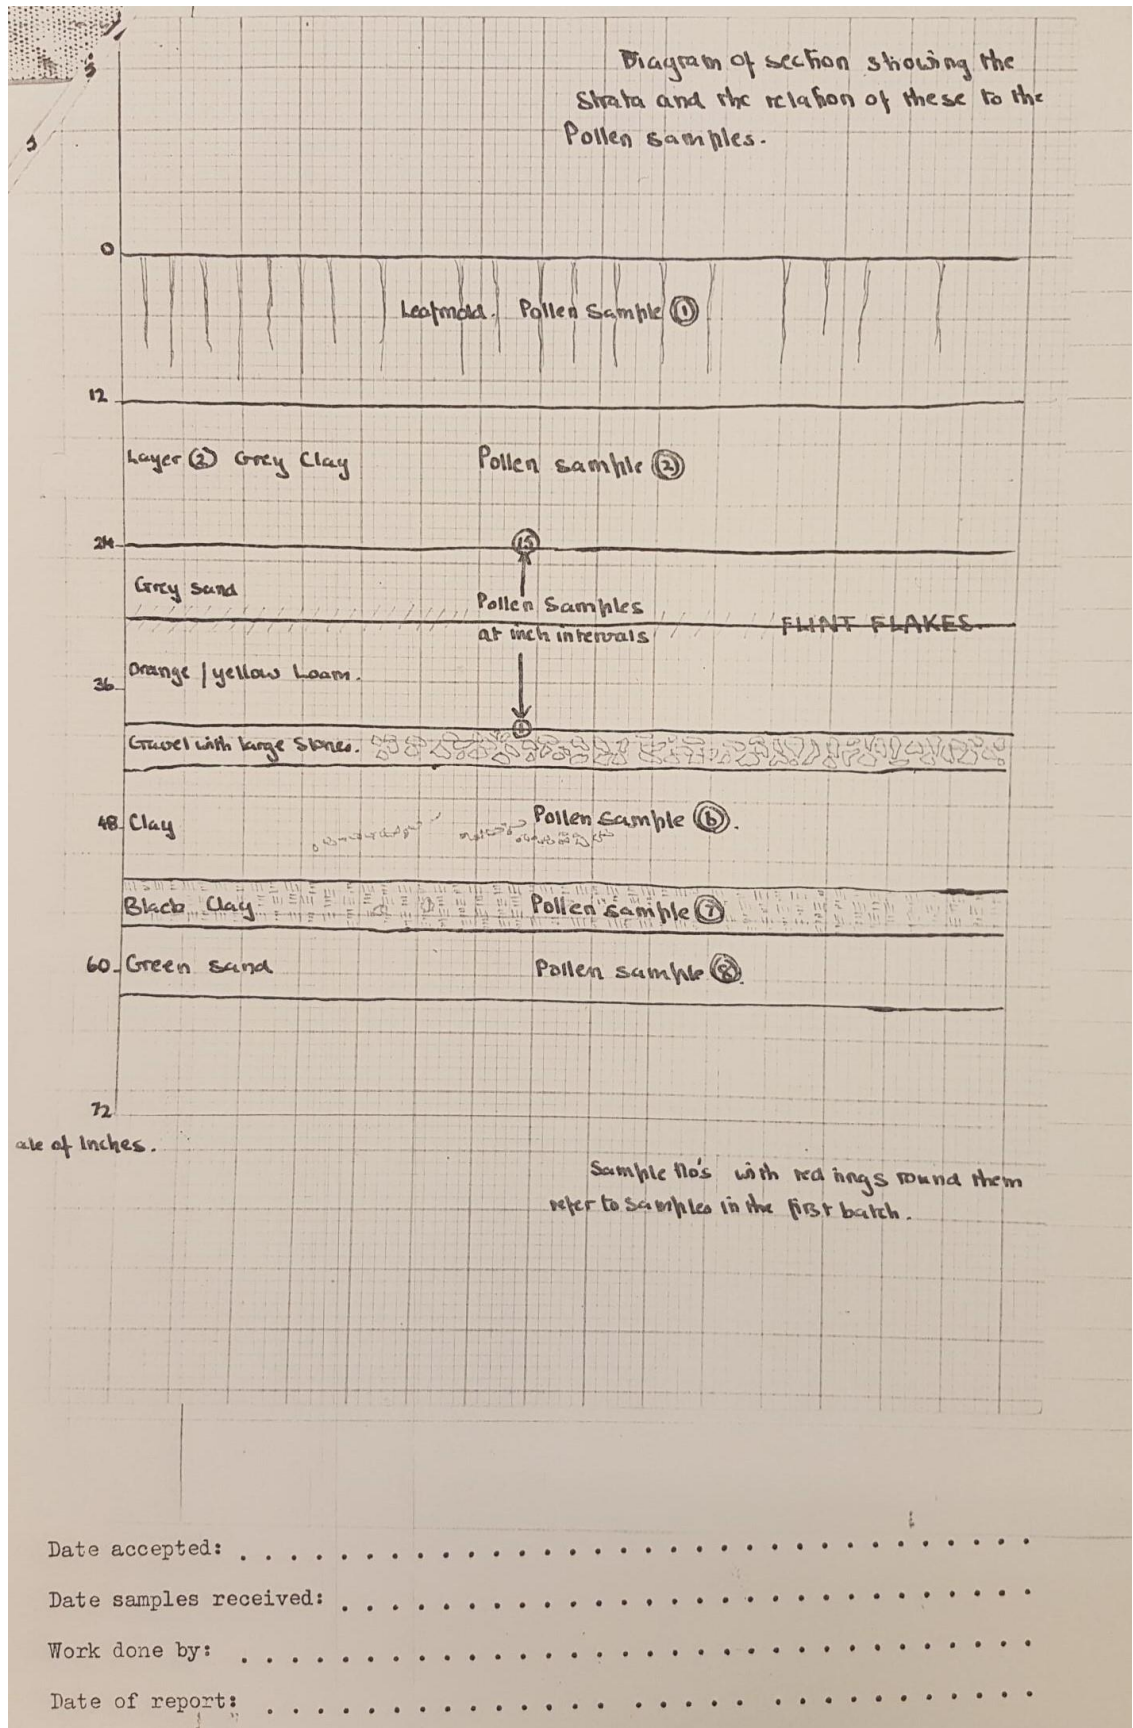 Diagram of section showing the
Strata and the relation of these to the
Pollen samples.
0
Leafmold. Pollen Sample ①
12
Layer ② Grey Clay Pollen sample ②
24
⑮
Grey sand
Pollen Samples
FLINT FLAKES.
at inch intervals
Orange / yellow Loam.
36
Gravel with large Stones.
48 Clay Pollen sample ⑥.
Black Clay Pollen sample ⑦
60 Green sand Pollen sample ⑧.
72
ale of Inches.
Sample No's with red rings round them
refer to samples in the first batch.
Date accepted:
Date samples received:
Work done by:
Date of report: